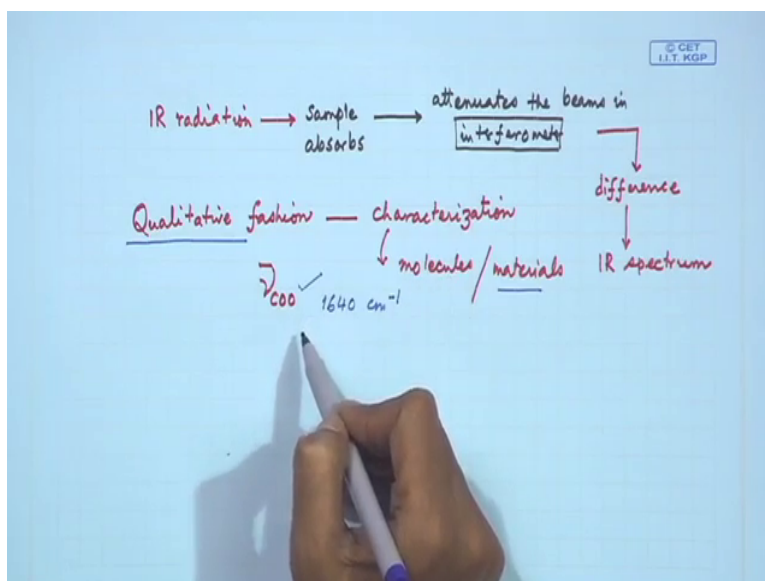 © CET
I.I.T. KGP
IR radiation → sample absorbs → attenuates the beams in interferometer
difference
Qualitative fashion — characterization
molecules / materials
IR spectrum
ν̄COO ✓ 1640 cm⁻¹